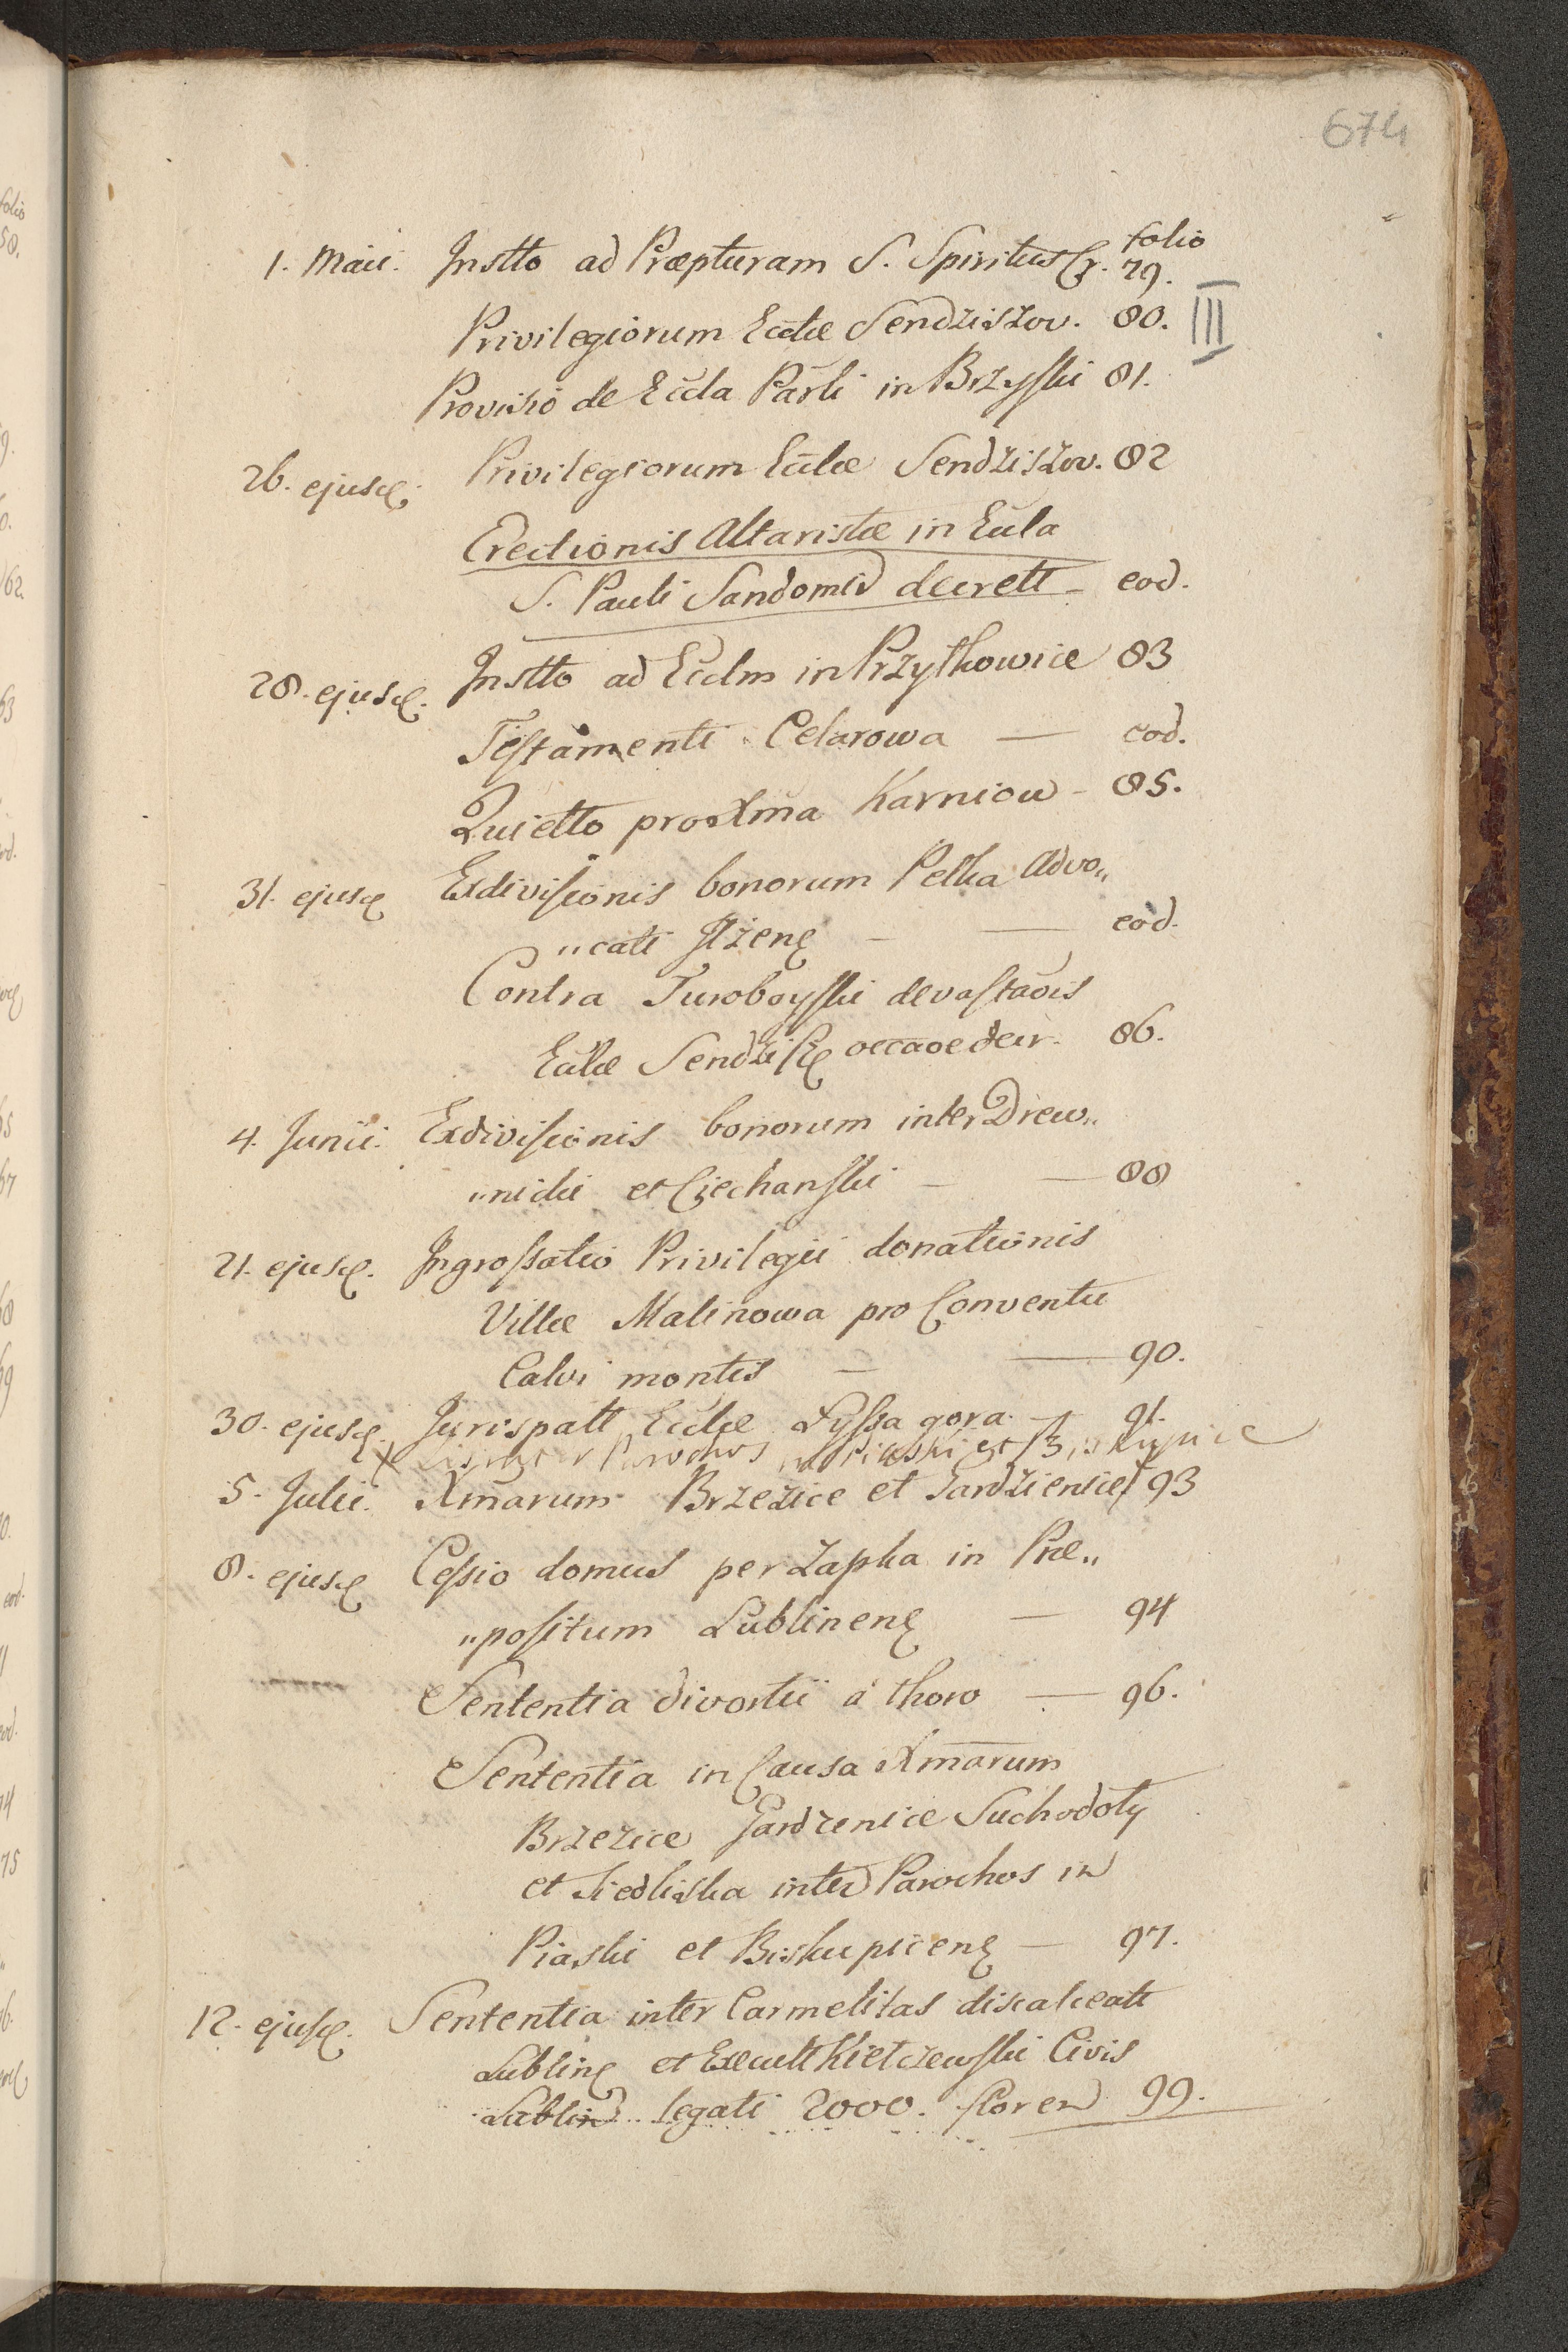 674
folio
1. Maii. Instto ad Præpturam S. Spiritus Cr. 79.
Privilegiorum Ecclæ Sendziszov. 80. III
Provisio de Eccla Parli in Brzyski 81.
26. ejusd. Privilegiorum Ecclæ Sendziszov. 82
Erectionis Altaristæ in Eccla
S. Pauli Sandomir decrett - eod.
28. ejusd. Instto ad Ecclm in Przytkowice 83
Testamenti Celarowa — eod.
Quietto pro Xma Karniow - 85.
31. ejusd Exdivisionis bonorum Pelka Advo„
„cati Ilżen — eod.
Contra Turoboyski devastaõis
Ecclæ Sendzis occaõe decr. 86.
4. Junii. Exdivisionis bonorum inter Drew„
„nicki et Ciechanski — 88
21. ejusd. Ingrossatio Privilegii donationis
Villæ Malinowa pro Conventu
Calvi montis — 90.
30. ejusd. Jurispatt Ecclæ Lyssa gora. — 91.
X inter Parochos in Piaski et Biskupice
5. Julii. Xmarum Brzezice et Gardzienice 93
8. ejusd Cessio domus per Zapka in Præ„
„positum Lublinen — 94
Sententia divortii à thoro — 96.
Sententia in Causa Xmarum
Brzezice Gardzenice Suchodoły
et Siedliska inter Parochos in
Piaski et Biskupicen — 97.
12. ejusd. Sententia inter Carmelitas discalceatt
Lublin et Execult Kiełczewski Civis
Lublin legati 2000. floren 99.